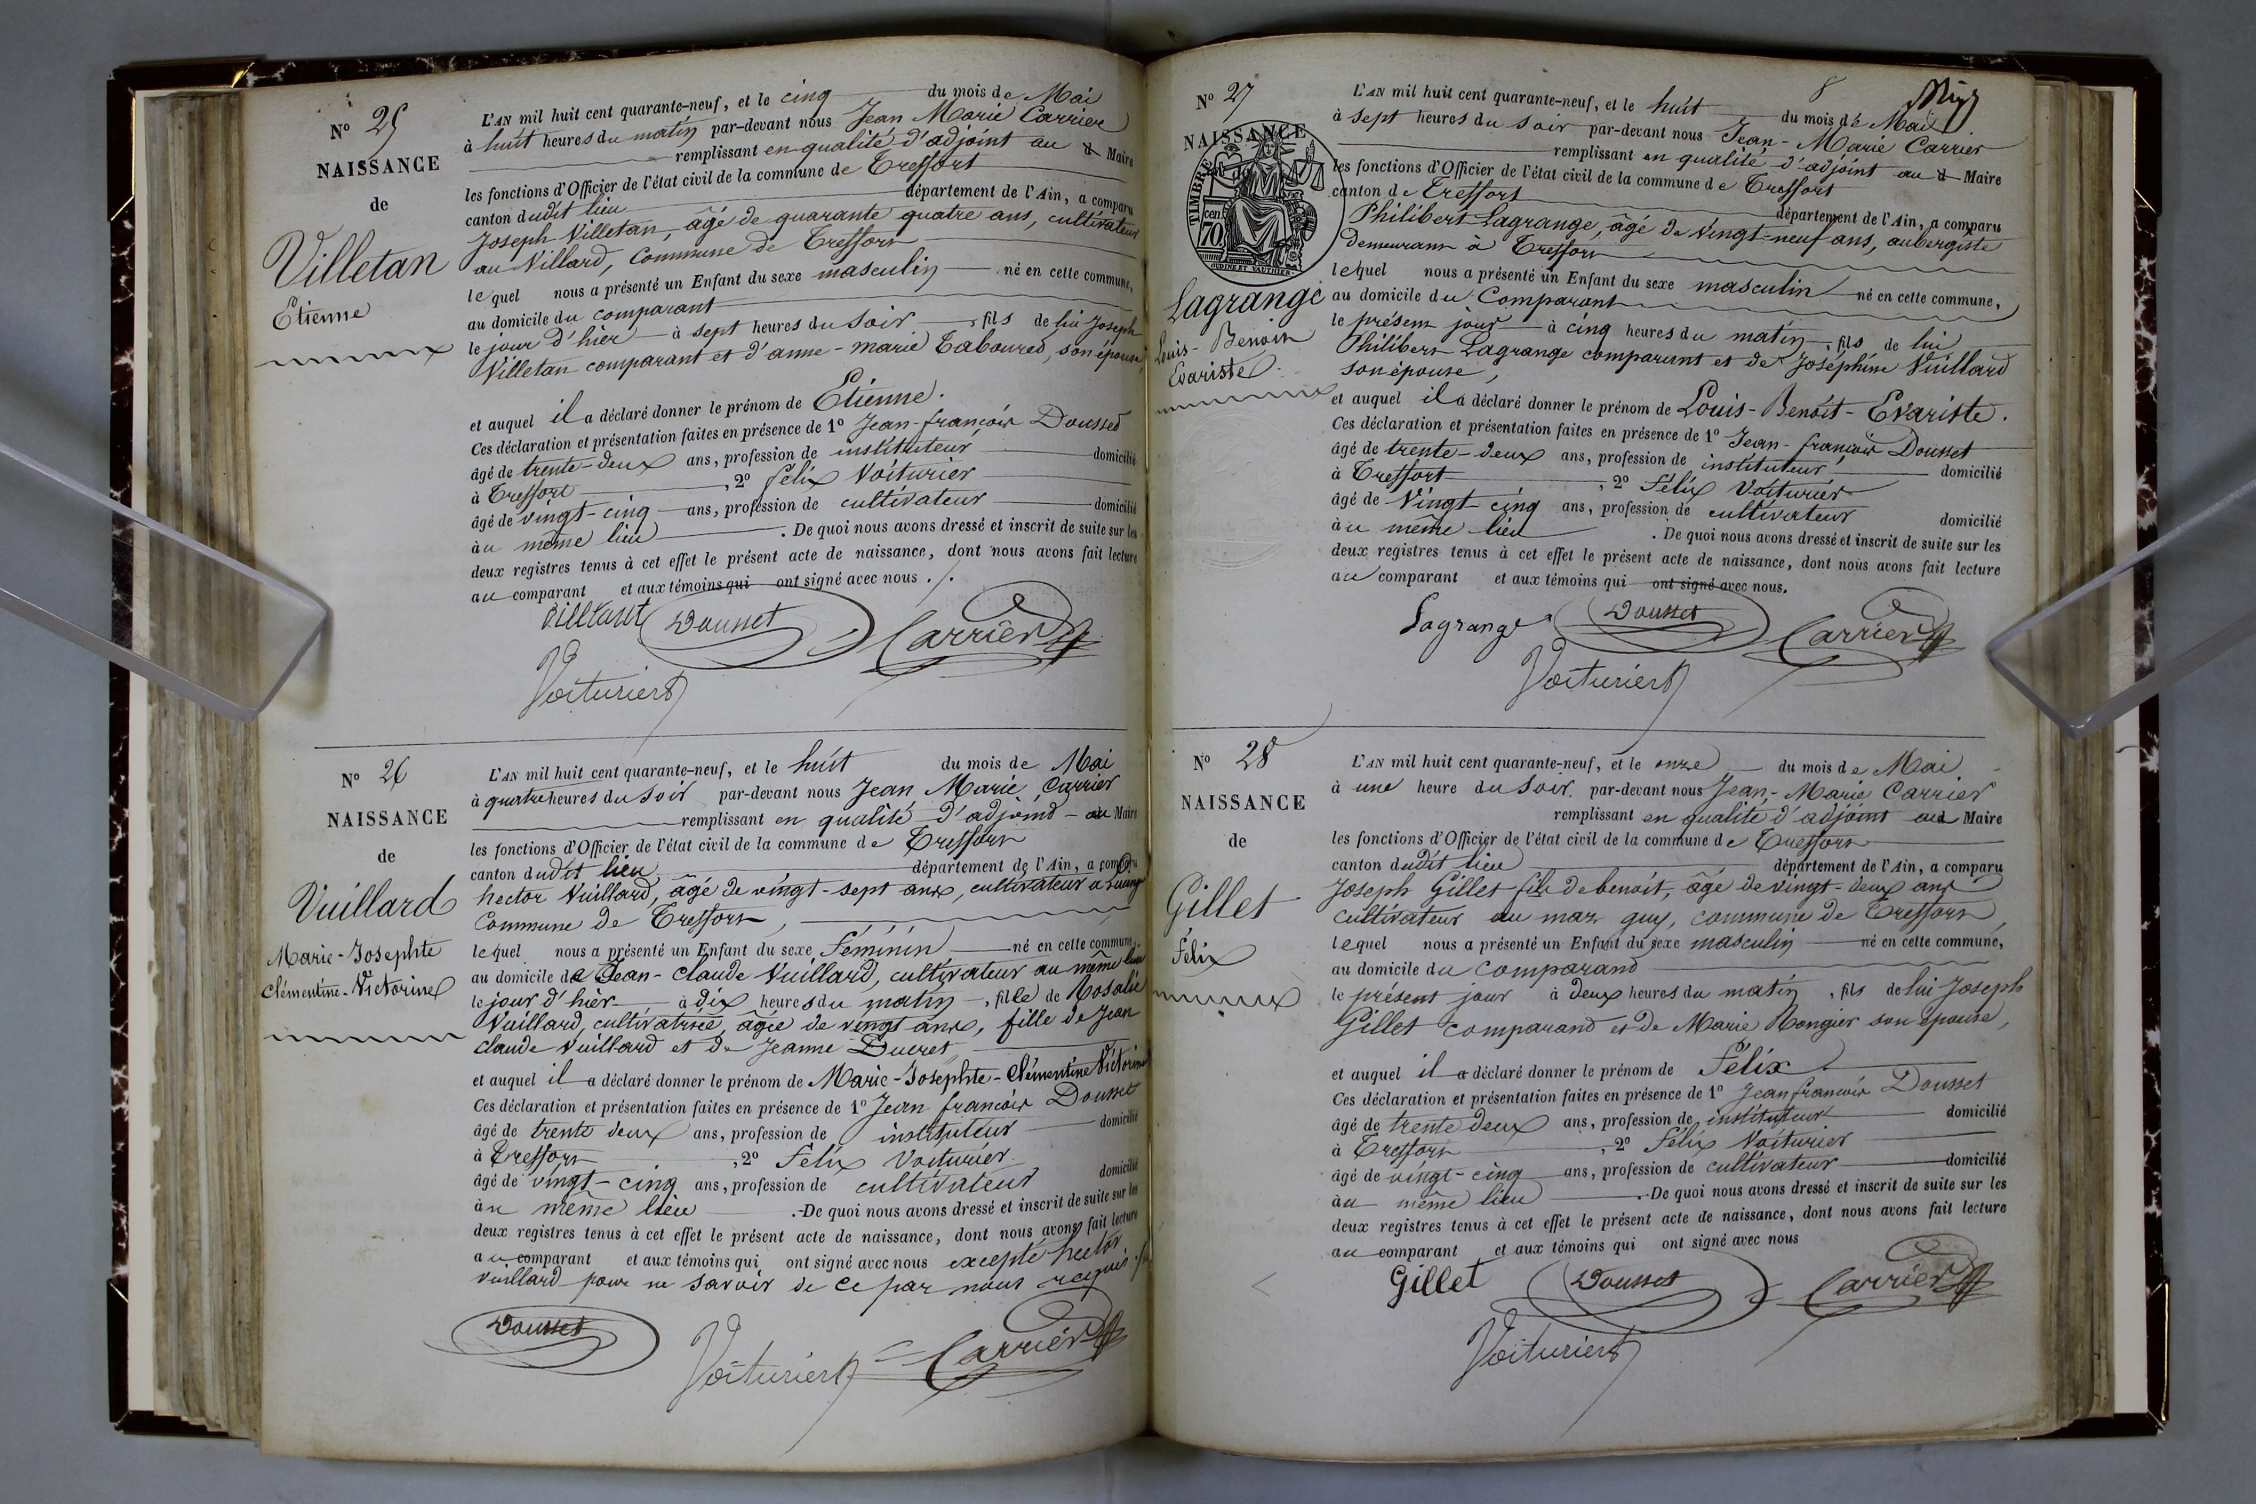 N° 25
NAISSANCE
de
Villetan
Etienne
L'AN mil huit cent quarante-neuf, et le cinq du mois de Mai
à huit heures du matin par-devant nous Jean Marie Carrier
remplissant en qualité d'adjoint au Maire
les fonctions d'Officier de l'état civil de la commune de Treffort
canton dudit lieu département de l'Ain, a comparu
Joseph Villetan, âgé de quarante quatre ans, cultivateur
au Villard, Commune de Treffort
lequel nous a présenté un Enfant du sexe masculin né en cette commune,
au domicile du comparant
le jour d'hier à sept heures du soir, fils de lui Joseph
Villetan comparant et d'anne-marie Tabouret, son épouse,
et auquel il a déclaré donner le prénom de Etienne.
Ces déclaration et présentation faites en présence de 1° Jean-françois Dousset
âgé de trente-deux ans, profession de instituteur domicilié
à Treffort, 2° félix Voiturier
âgé de vingt-cinq ans, profession de cultivateur domicilié
au même lieu. De quoi nous avons dressé et inscrit de suite sur les
deux registres tenus à cet effet le présent acte de naissance, dont nous avons fait lecture
au comparant et aux témoins qui ont signé avec nous ./.
Dousset Carrier
Voiturier
N° 26
NAISSANCE
de
Vuillard
Marie-Josephte
Clémentine-Victorine
L'AN mil huit cent quarante-neuf, et le huit du mois de Mai
à quatre heures du soir par-devant nous Jean Marie Carrier
remplissant en qualité d'adjoint au Maire
les fonctions d'Officier de l'état civil de la commune de Treffort
canton dudit lieu département de l'Ain, a comparu
hector Vuillard, âgé de vingt-sept ans, cultivateur à
Commune de Treffort,
lequel nous a présenté un Enfant du sexe Féminin né en cette commune,
au domicile de Jean-claude Vuillard, cultivateur au même lieu
le jour d'hier à dix heures du matin, fille de Rosalie
Vuillard, cultivatrice, âgée de vingt ans, fille de Jean
claude Vuillard et de Jeanne Ducret
et auquel il a déclaré donner le prénom de Marie-Josephte-Clémentine Victorine
Ces déclaration et présentation faites en présence de 1° Jean françois Dousset
âgé de trente deux ans, profession de instituteur domicilié
à Treffort, 2° Felix Voiturier
âgé de vingt-cinq ans, profession de cultivateur domicilié
au même lieu. De quoi nous avons dressé et inscrit de suite sur les
deux registres tenus à cet effet le présent acte de naissance, dont nous avons fait lecture
au comparant et aux témoins qui ont signé avec nous excepté hector
Vuillard pour ne savoir de ce par nous requis ./.
Dousset
Voiturier Carrier
8
N° 27
NAISSANCE
TIMBRE
70 cen
OUDINÉ ET VAUTHIER
Lagrange
Louis-Benoit
Evariste
L'AN mil huit cent quarante-neuf, et le huit du mois de Mai
à sept heures du soir par-devant nous Jean-Marie Carrier
remplissant en qualité d'adjoint au Maire
les fonctions d'Officier de l'état civil de la commune de Treffort
canton de Treffort département de l'Ain, a comparu
Philibert Lagrange, âgé de vingt-neuf ans, aubergiste
demeurant à Treffort
lequel nous a présenté un Enfant du sexe masculin né en cette commune,
au domicile du Comparant
le présent jour à cinq heures du matin, fils de lui
Philibert Lagrange comparant et de Joséphine Vuillard
son épouse,
et auquel il a déclaré donner le prénom de Louis-Benoit-Evariste.
Ces déclaration et présentation faites en présence de 1° Jean-françois Dousset
âgé de trente-deux ans, profession de instituteur domicilié
à Treffort, 2° Félix Voiturier
âgé de Vingt cinq ans, profession de cultivateur domicilié
au même lieu. De quoi nous avons dressé et inscrit de suite sur les
deux registres tenus à cet effet le présent acte de naissance, dont nous avons fait lecture
au comparant et aux témoins qui ont signé avec nous.
Lagrange Dousset Carrier
Voiturier
N° 28
NAISSANCE
de
Gillet
Félix
L'AN mil huit cent quarante-neuf, et le onze du mois de Mai
à une heure du soir par-devant nous Jean-Marie Carrier
remplissant en qualité d'adjoint au Maire
les fonctions d'Officier de l'état civil de la commune de Treffort
canton dudit lieu département de l'Ain, a comparu
Joseph Gillet fils de benoit, âgé de vingt-deux ans
cultivateur au mas guy, commune de Treffort,
lequel nous a présenté un Enfant du sexe masculin né en cette commune,
au domicile du comparand
le présent jour à deux heures du matin, fils de lui Joseph
Gillet comparand et de Marie Rongier son épouse,
et auquel il a déclaré donner le prénom de Félix
Ces déclaration et présentation faites en présence de 1° Jean françois Dousset
âgé de trente deux ans, profession de instituteur domicilié
à Treffort, 2° Félix Voiturier
âgé de vingt-cinq ans, profession de cultivateur domicilié
au même lieu. De quoi nous avons dressé et inscrit de suite sur les
deux registres tenus à cet effet le présent acte de naissance, dont nous avons fait lecture
au comparant et aux témoins qui ont signé avec nous
Gillet Dousset Carrier
Voiturier